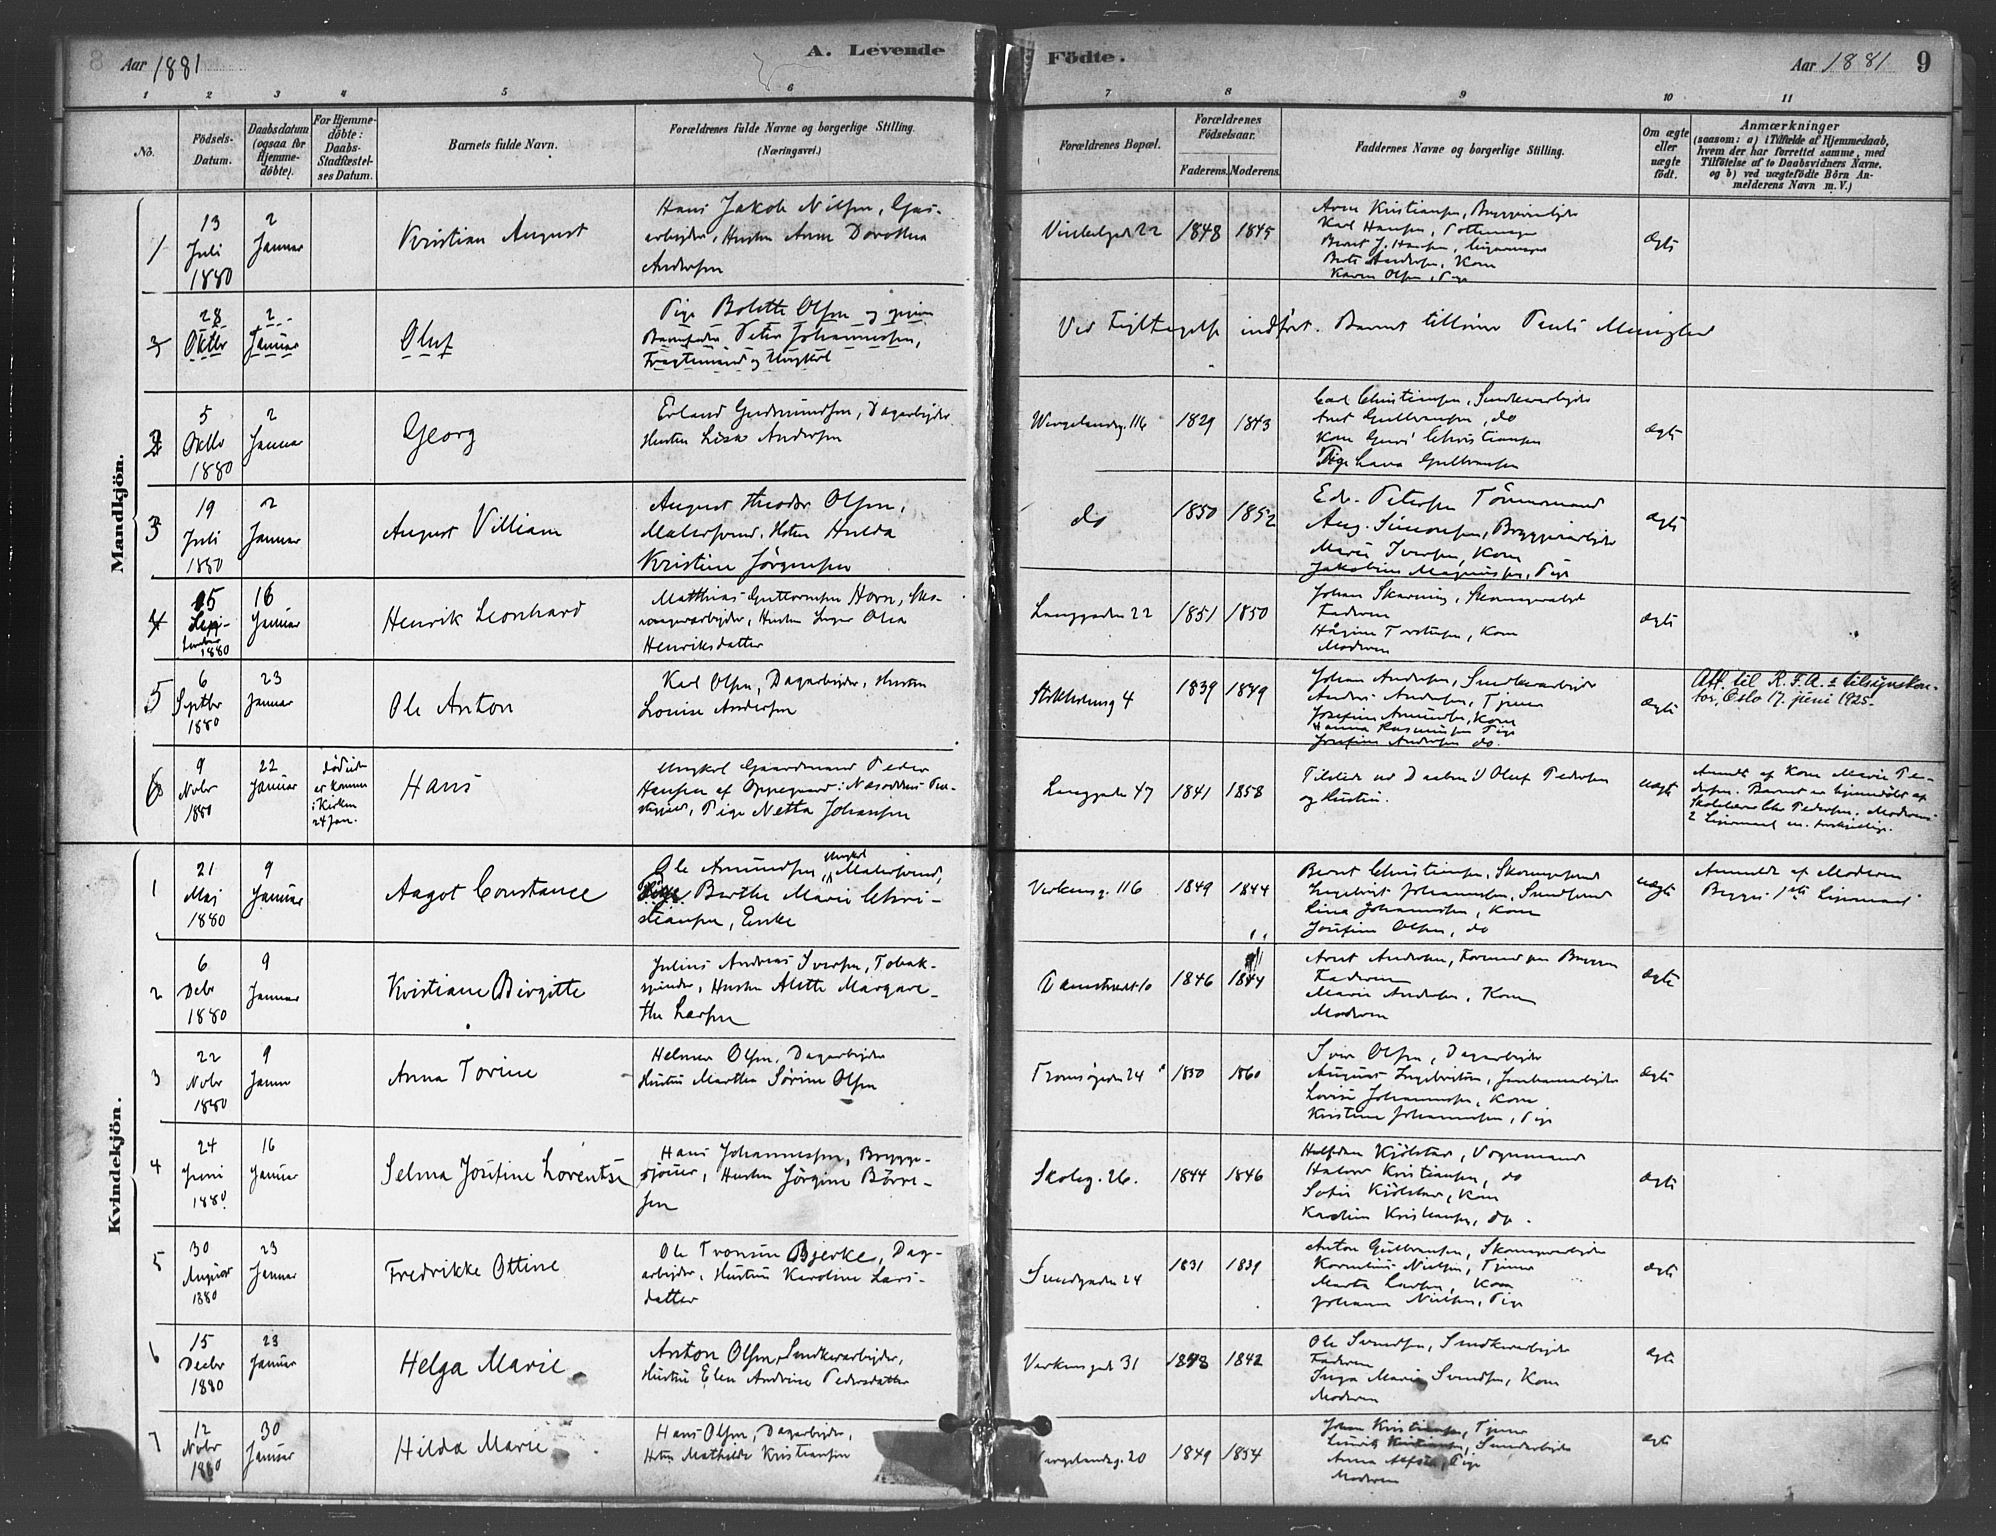 8 Aar 1881
A. Levende
Födte.
Aar 1881 9
1 2 3 4 5 6 7 8 9 10 11
No.
Födsels-
Datum.
Daabsdatum
(ogsaa for
Hjemme-
döbte).
For Hjemme-
döbte:
Daabs-
Stadfæstel-
ses Datum.
Barnets fulde Navn.
Forældrenes fulde Navne og borgerlige Stilling.
(Næringsvei.)
Forældrenes Bopæl.
Forældrenes
Födselsaar.
Faderens. Moderens.
Faddernes Navne og borgerlige Stilling.
Om ægte
eller
uægte
födt.
Anmærkninger
(saasom: a) i Tilfælde af Hjemmedaab,
hvem der har forrettet samme, med
Tilföielse af to Daabsvidners Navne,
og b) ved uægtefödte Börn An-
melderens Navn m.V.)
Mandkjön.
1
13
Juli
1880
2
Januar
Kristian August
Hans Jakob Nilsen, Gas-
arbejder, Hustru Anne Dorothea
Andersen
22
1848
1845
Arne Kristiansen, Bryggeriarbejder
Karl Hansen, Pottemager
Bernt J. Hansen,
Andersen, Kone
Karen Olsen, Pige
Ægte
28
Oktbr
2
Januar
Oluf
Pige Bolette Olsen og
Barnefader Peter Johannessen,
og Ungkarl
Ved indført. Barnet tilhører Pauls Menighed
2
5
Oktbr
1880
2
Januar
Georg
Erland Gudmundsen, Dagarbejder
Hustru Lisa Andersen
Wergelandsg. 116
1829
1843
Carl Christiansen,
Gulbransen, do
Kone Christiansen
Pige Gulbransen
Ægte
3
19
Juli
1880
2
Januar
August Villiam
August Theodor Olsen,
Malersvend, Hustru Hulda
Kristine Jørgensen
do
1850
1852
Edv. Petersen Tömmermand
Aug. Simonsen, Bryggeriarbejder
Marie Iversen, Kone
Jakobine Magnussen, Pige
Ægte
4
15
Sep-
tember
1880
16
Januar
Henrik Leonhard
Matthias Guttormsen Horn, Sko-
magerarbejder, Hustru Inger Olea
Henriksdatter
Langgaden 22
1851
1850
Johan
Faderen
Torstensen, Kone
Moderen
Ægte
5
6
Septbr
1880
23
Januar
Ole Anton
Karl Olsen, Dagarbejder, Hustru
Louise Andersen
4
1839
1849
Johan Andersen,
Andersen, Tjener
Josefine Amundsen, Kone
Hanna Rasmussen Pige
Josefine Andersen do.
Ægte
Att. til R.F.A.s tilsynskon-
tor, Oslo 17. juni 1925.
6
9
Novbr
1880
22
Januar
er kommen
i Kirken
24 Jan.
Hans
Ungkarl Gaardmand Peder
Hansen af Oppegaard i Næsoddens Præ-
stegjeld, Pige Netta Johansen
Langgaden 47
1841
1858
Tilstede ved Daaben Oluf Pedersen
og Hustru.
Uægte
Anmeldt af Kone Marie Pe-
dersen. Barnet er hjemmedøbt af
Pedersen. Moderens
2 Leiermaal
Kvindekjön.
1
21
Maj
1880
9
Januar
Aagot Constance
Ole Amundsen, Ungkarl Malersvend,
Berthe Marie Chri-
stiansen, Enke
Verkensg. 116
1849
1844
Bernt Christiansen,
Ingebrigt Johannessen,
Lina Johannessen, Kone
Josefine Olsen, do
Uægte
Anmeldt af Moderen
Begges 1ste Leiermaal
2
6
Debr
1880
9
Januar
Kristiane Birgitte
Julius Andreas Iversen, Tobak-
spinder, Hustru Alette Margare-
the Larsen
Damstredet 10
1846
1844
Arnt Andersen,
Faderen
Marie Andersen, Kone
Moderen
Ægte
3
22
Novbr
1880
9
Januar
Anna Torine
Helmer Olsen, Dagarbejder
Hustru Martha Sörine Olsen
Tromsögaden 24
1850
1860
Olsen, Dagarbejder
August Ingebretsen, Jernbanearbejder
Lovise Johannessen, Kone
Kristine Johannessen, Pige
Ægte
4
24
Juni
1880
16
Januar
Selma Josefine Lorentse
Hans Johannessen, Brygge-
sjouer, Hustru Jörgine Börre-
sen
Skoleg. 26.
1844
1846
Halfdan Kjölstad, Vognmand
Halvor Kristiansen, do
Sofie Kjölstad, Kone
Karoline Kristiansen, do.
Ægte
5
30
August
1880
23
Januar
Fredrikke Ottine
Ole Tronsen Bjerke, Dag-
arbejder, Hustru Karoline Lars-
datter
Sundgaden 24
1831
1839
Anton Gulbransen, Skomagerarbejder
Kornelius Nielsen, Tjener
Marta Larsen, Kone
Johanne Nielsen, Pige
Ægte
6
15
Decbr
1880
23
Januar
Helga Marie
Anton Olsen,
Hustru Elen Andrine Pedersdatter
Verkensgade 31
1843
1842
Ole Svendsen,
Faderen
Inga Marie Svendsen, Kone
Moderen
Ægte
7
12
Novbr
1880
30
Januar
Hilda Marie
Hans Olsen, Dagarbejder,
Hustru Mathilde Kristiansen
Wergelandsg. 20
1849
1854
Johan Kristiansen, Tjener
Kristiansen,
Anna Pige
Moderen
Ægte